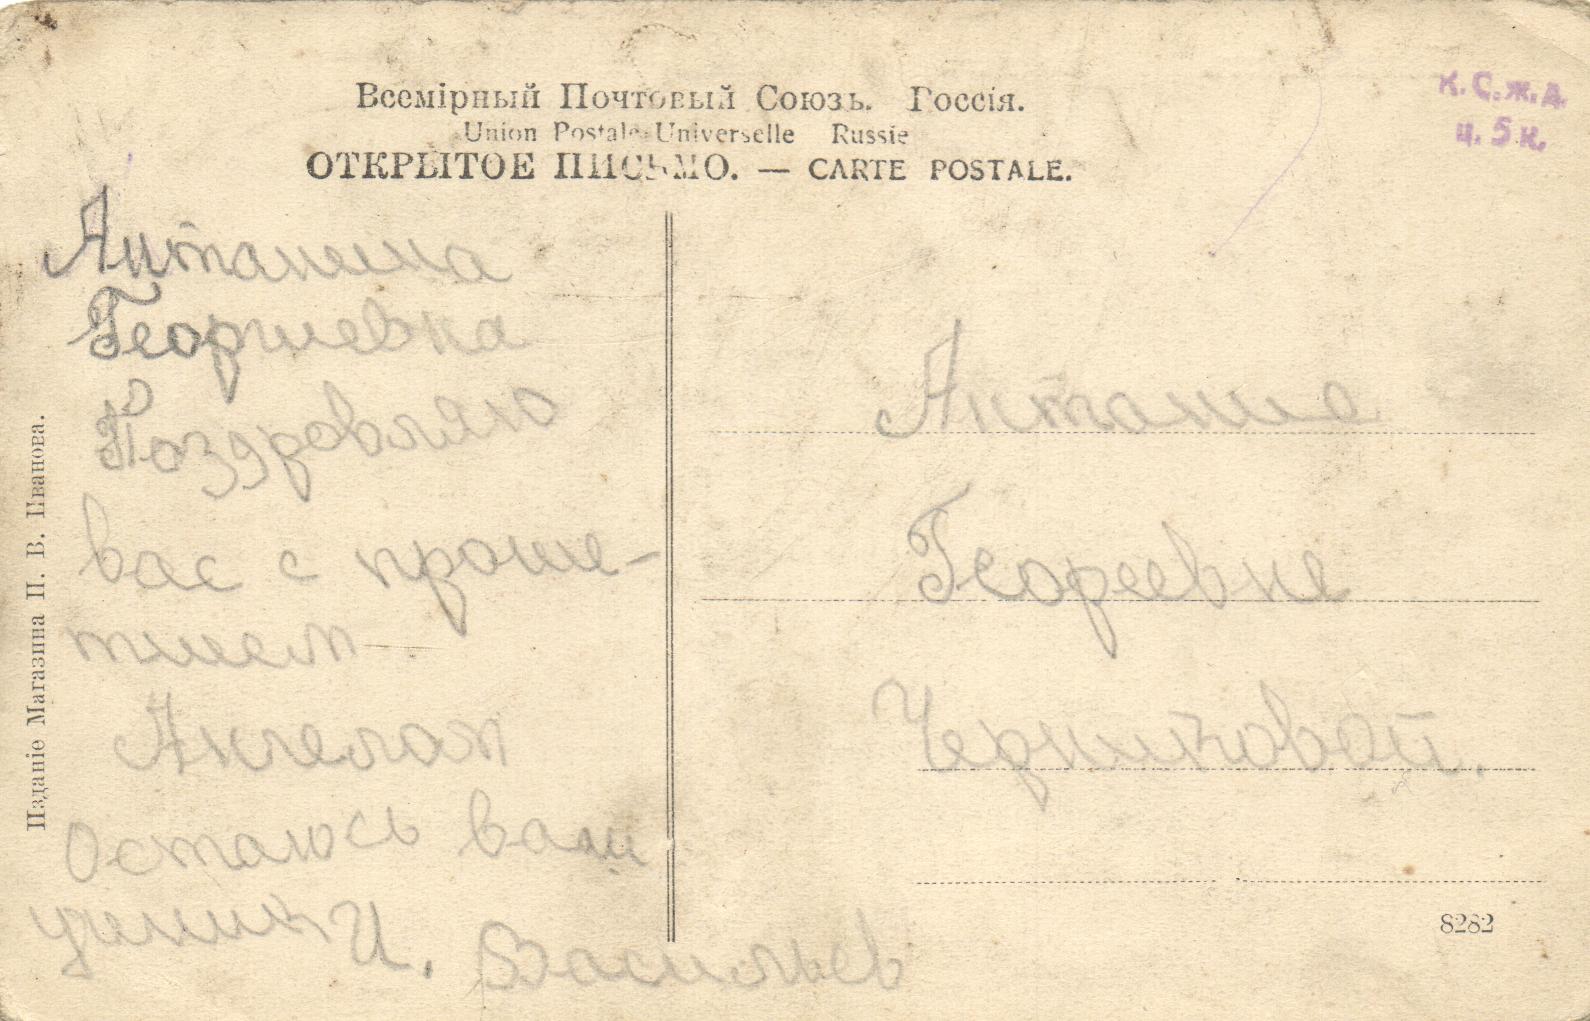 Всемірный Почтовый Союзъ. Россія.
Union Postale Universelle Russie
ОТКРЫТОЕ ПИСЬМО. — CARTE POSTALE.
К.С.Ж.Д.
ц. 5 к.
Антанина
Георгиевна
Поздровляю
вас с проше-
тшем
Ангелом
Остаюсь ваш
ученик И. Васильев
Антанине
Георгевне
Черниковой.
Изданіе Магазина П. В. Иванова.
8282